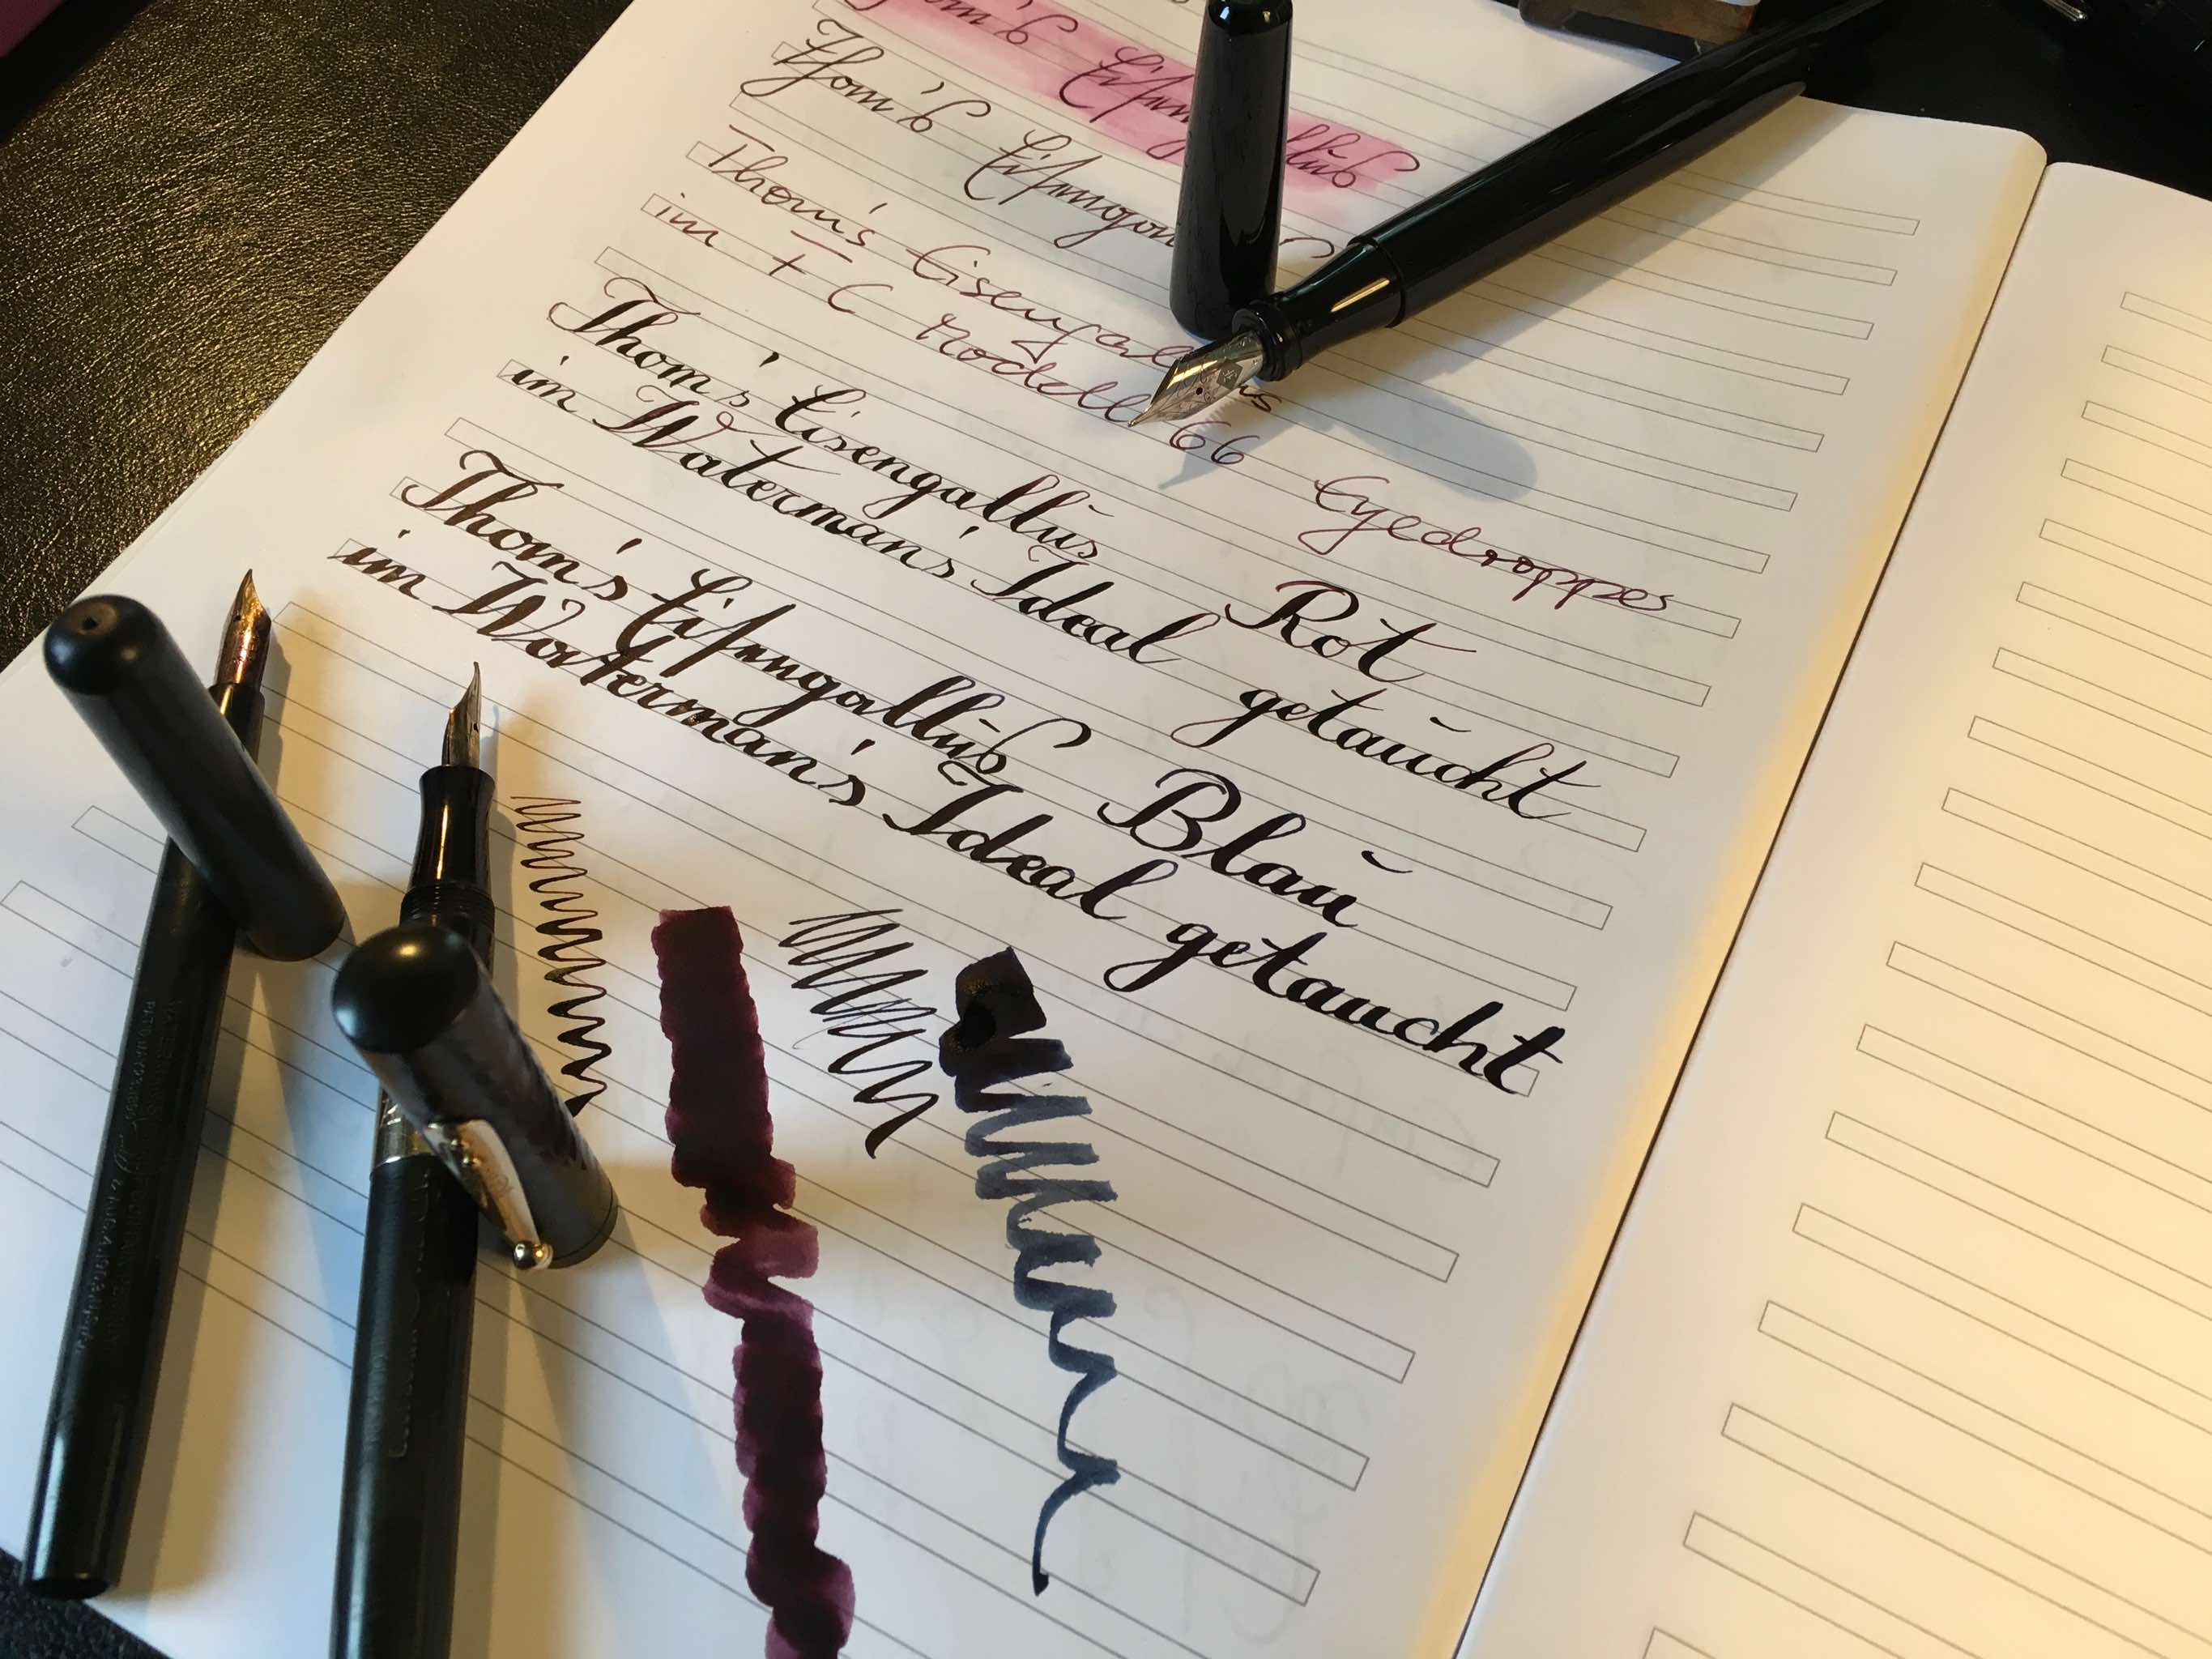 Thom's Eisengallus
Thom's
Thom's Eisengallus
in + C Modell 66 Eyedropper
Thom's Eisengallus Rot
in Waterman's Ideal getaucht
Thom's Eisengallus Blau
in Waterman's Ideal getaucht